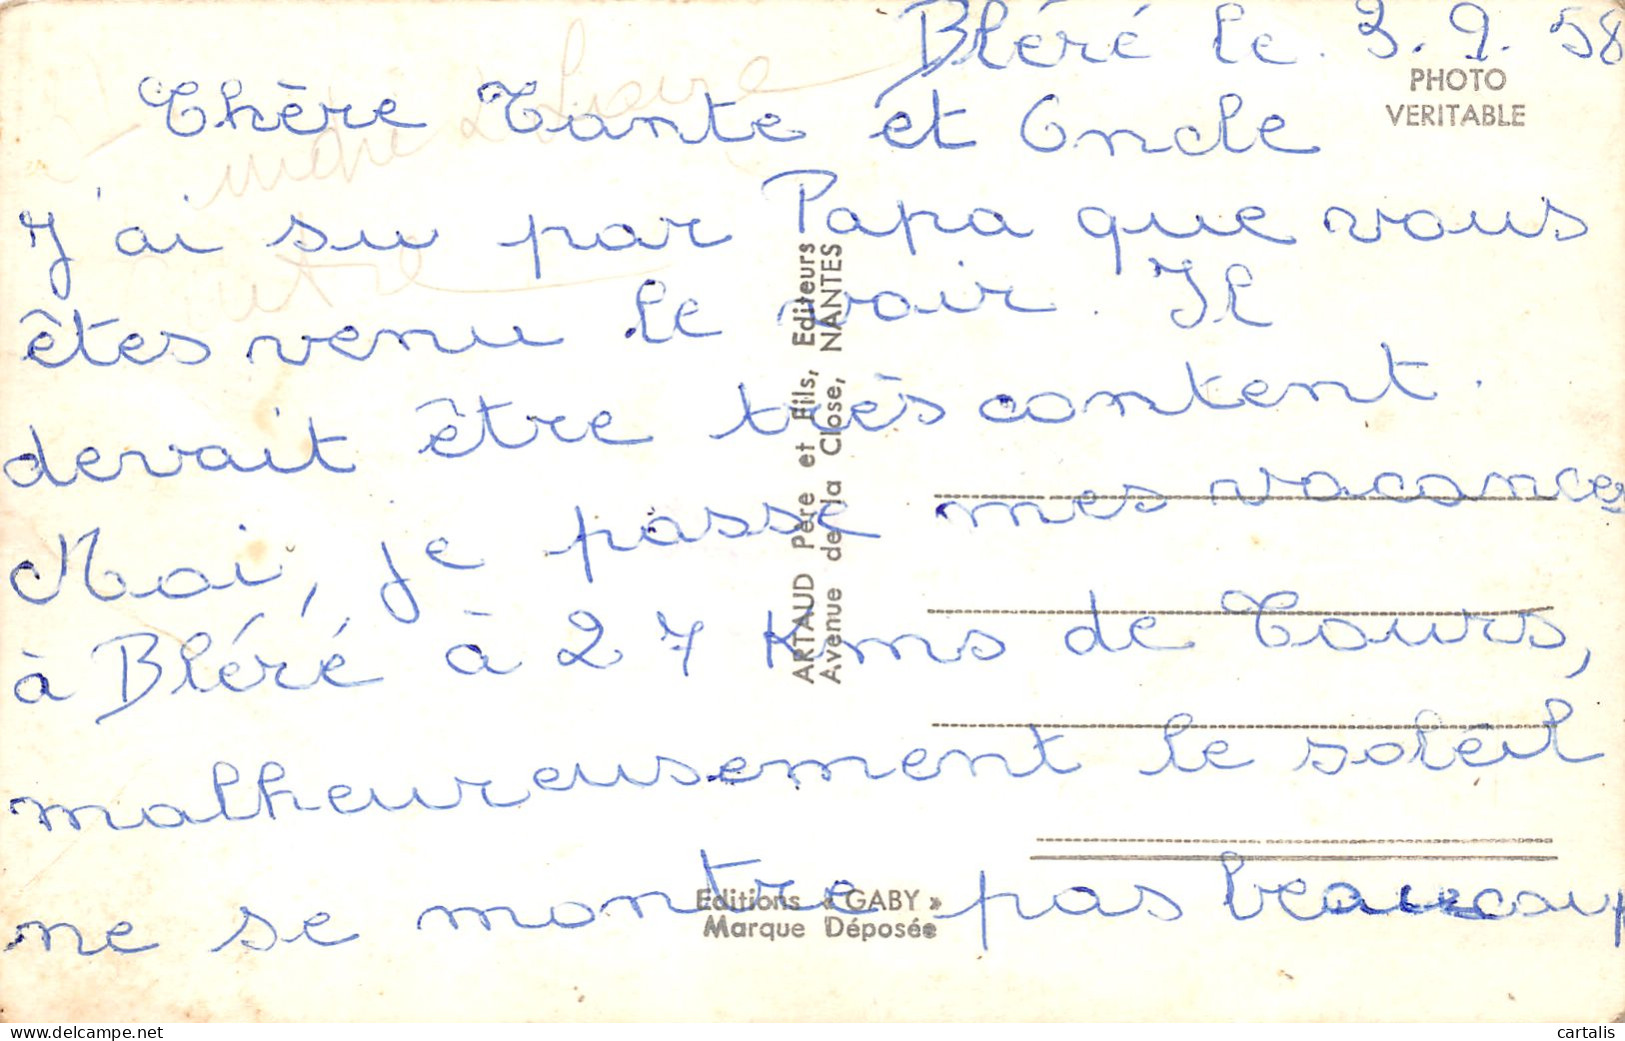 Bléré le 3.9.58
PHOTO
VERITABLE
Chère Tante et Oncle
J'ai su par Papa que vous
êtes venu le voir. Il
devait être très content.
Moi, je passe mes vacances
à Bléré à 27 Kms de Tours,
malheureusement le soléil
ne se montre pas beaucoup
ARTAUD Père et Fils, Editeurs
Avenue de la Close, NANTES
Editions « GABY »
Marque Déposée
Indre & Loire
delcampe.net
cartalis